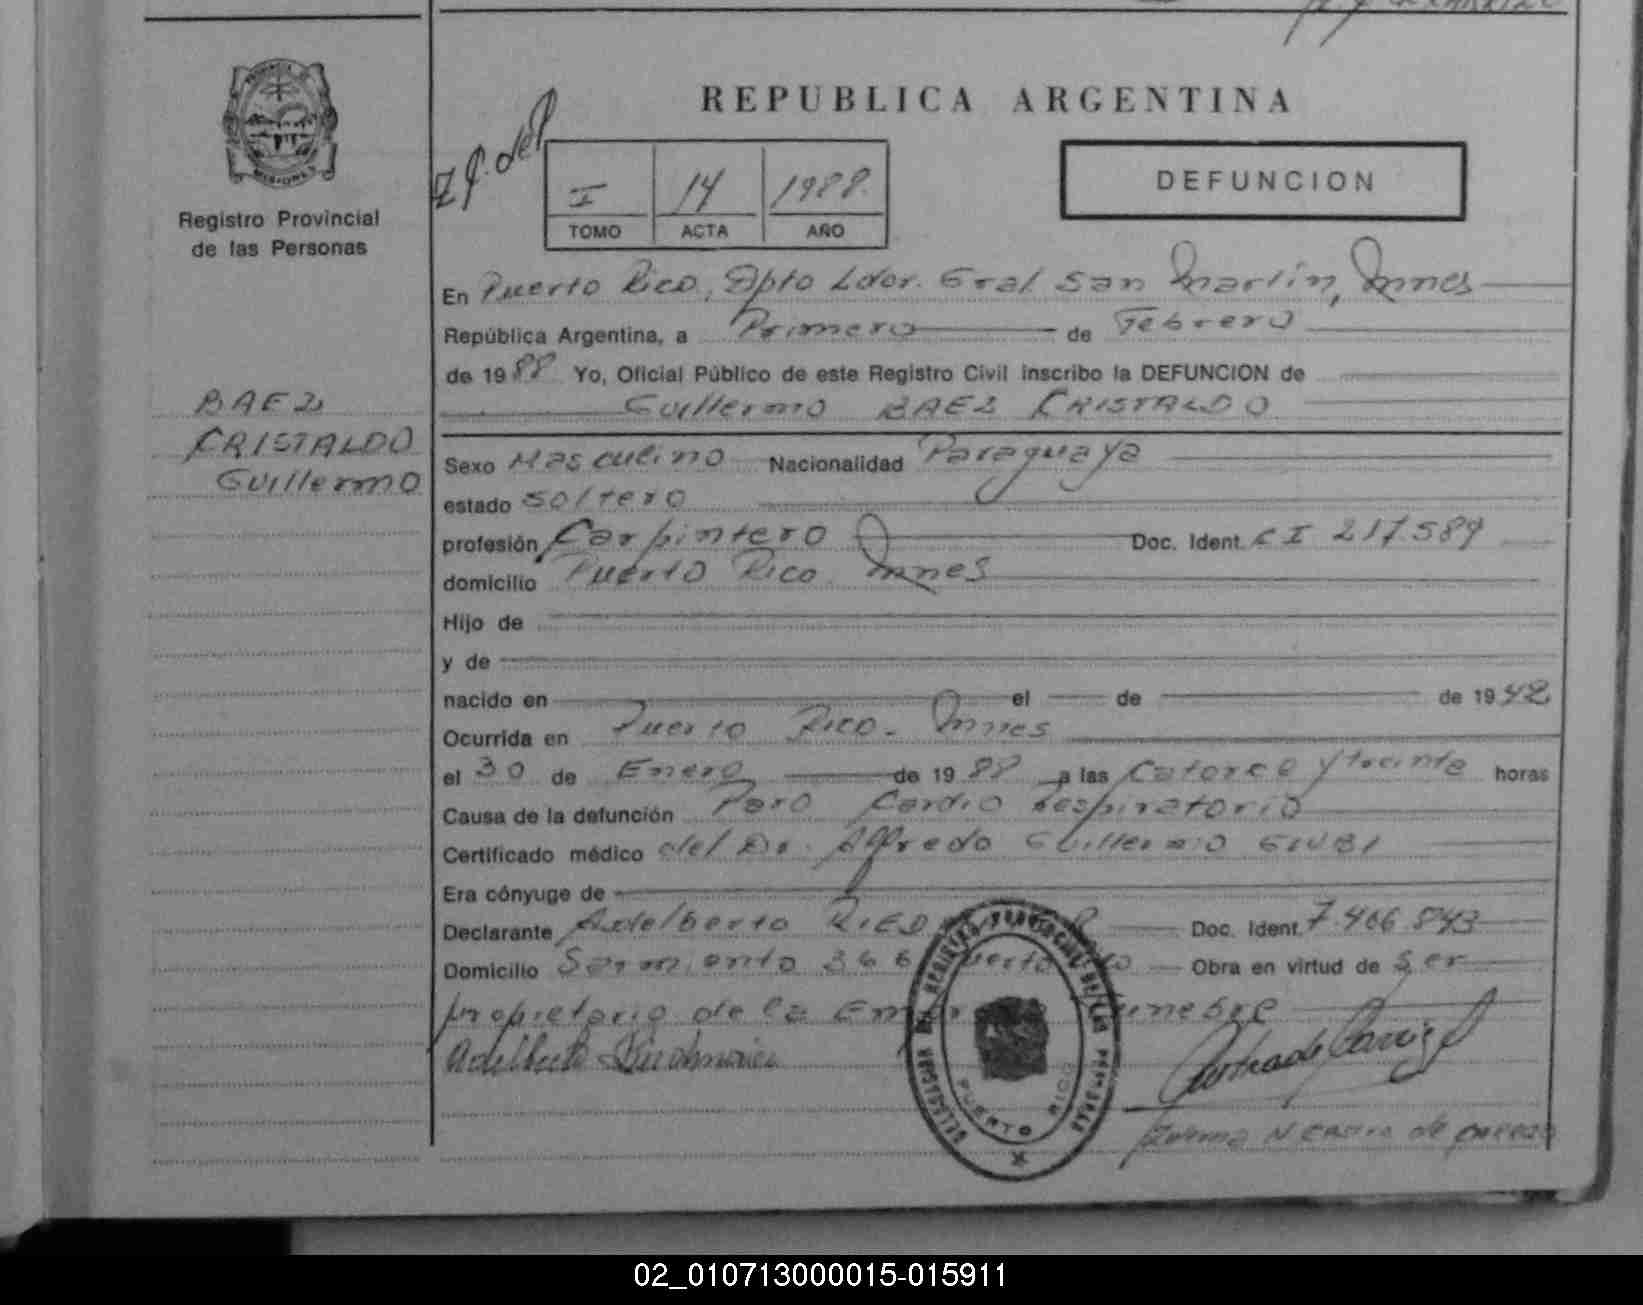 REPUBLICA ARGENTINA
PROVINCIA DE
MISIONES
Registro Provincial
de las Personas
I 14 1988.
TOMO ACTA AÑO
DEFUNCION
En Puerto Rico, Dpto Ldor. Gral San Martín, Mnes
República Argentina, a Primero de Febrero
de 1988 Yo, Oficial Público de este Registro Civil inscribo la DEFUNCION de
Guillermo BAEZ CRISTALDO
BAEZ
CRISTALDO
Guillermo
Sexo Masculino Nacionalidad Paraguaya
estado soltero
profesión Carpintero Doc. Ident. CI 217.589
domicilio Puerto Rico Mnes
Hijo de
y de
nacido en el de de 1942
Ocurrida en Puerto Rico - Mnes
el 30 de Enero de 1988 a las Catorce y treinta horas
Causa de la defunción Paro Cardio Respiratorio
Certificado médico del Dr. Alfredo Guillermo GIUBI
Era cónyuge de
Declarante Adelberto Doc. Ident. 7.406.843
Domicilio Sarmiento 366 Puerto Rico Obra en virtud de ser
propietario de la Empresa Funebre
DELEGACION DEL REGISTRO PROVINCIAL DE LAS PERSONAS
PUERTO RICO
Zulma N Castro de
02_010713000015-015911